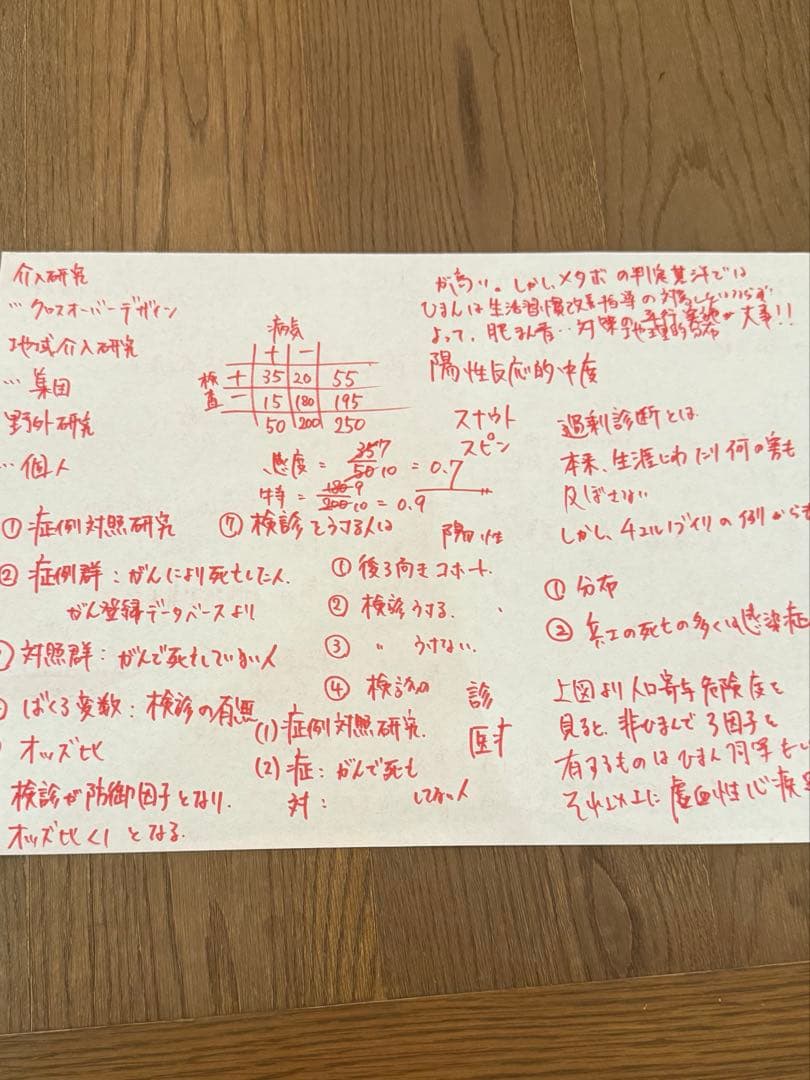 介入研究
…クロスオーバーデザイン
地域介入研究
…集団
野外研究
…個人
① 症例対照研究
② 症例群：がんにより死亡した人.
がん登録データベースより
対照群：がんで死亡していない人
ばくろ変数：検診の有無
オッズ比
検診が防御因子となり.
オッズ比<1 となる.
病気
+ −
検査 + 35 20 55
− 15 180 195
50 200 250
感度 = 35 7 / 50 10 = 0.7
特 = 180 9 / 200 10 = 0.9
⑦ 検診をうける人は
① 後ろ向きコホート.
② 検診うける.
③ 〃 うけない.
④ 検診の
(1) 症例対照研究.
(2) 症：がんで死亡
対： してない人
が高い。しかしメタボの判定基準では
ひまんは生活習慣改善指導の対象
よって、肥まん者…対策の 実施が大事!!
地理的分布
陽性反応的中度
スナウト
スピン
陽性
診
医才
過剰診断とは
本来、生涯にわたり何の害も
及ぼさない
しかし、チェルノブイリの例からも
① 分布
② 兵士の死亡の多くは感染症
上図より人口寄与危険度を
見ると、非ひまんで3因子を
有するものはひまん
それ以上に虚血性心疾